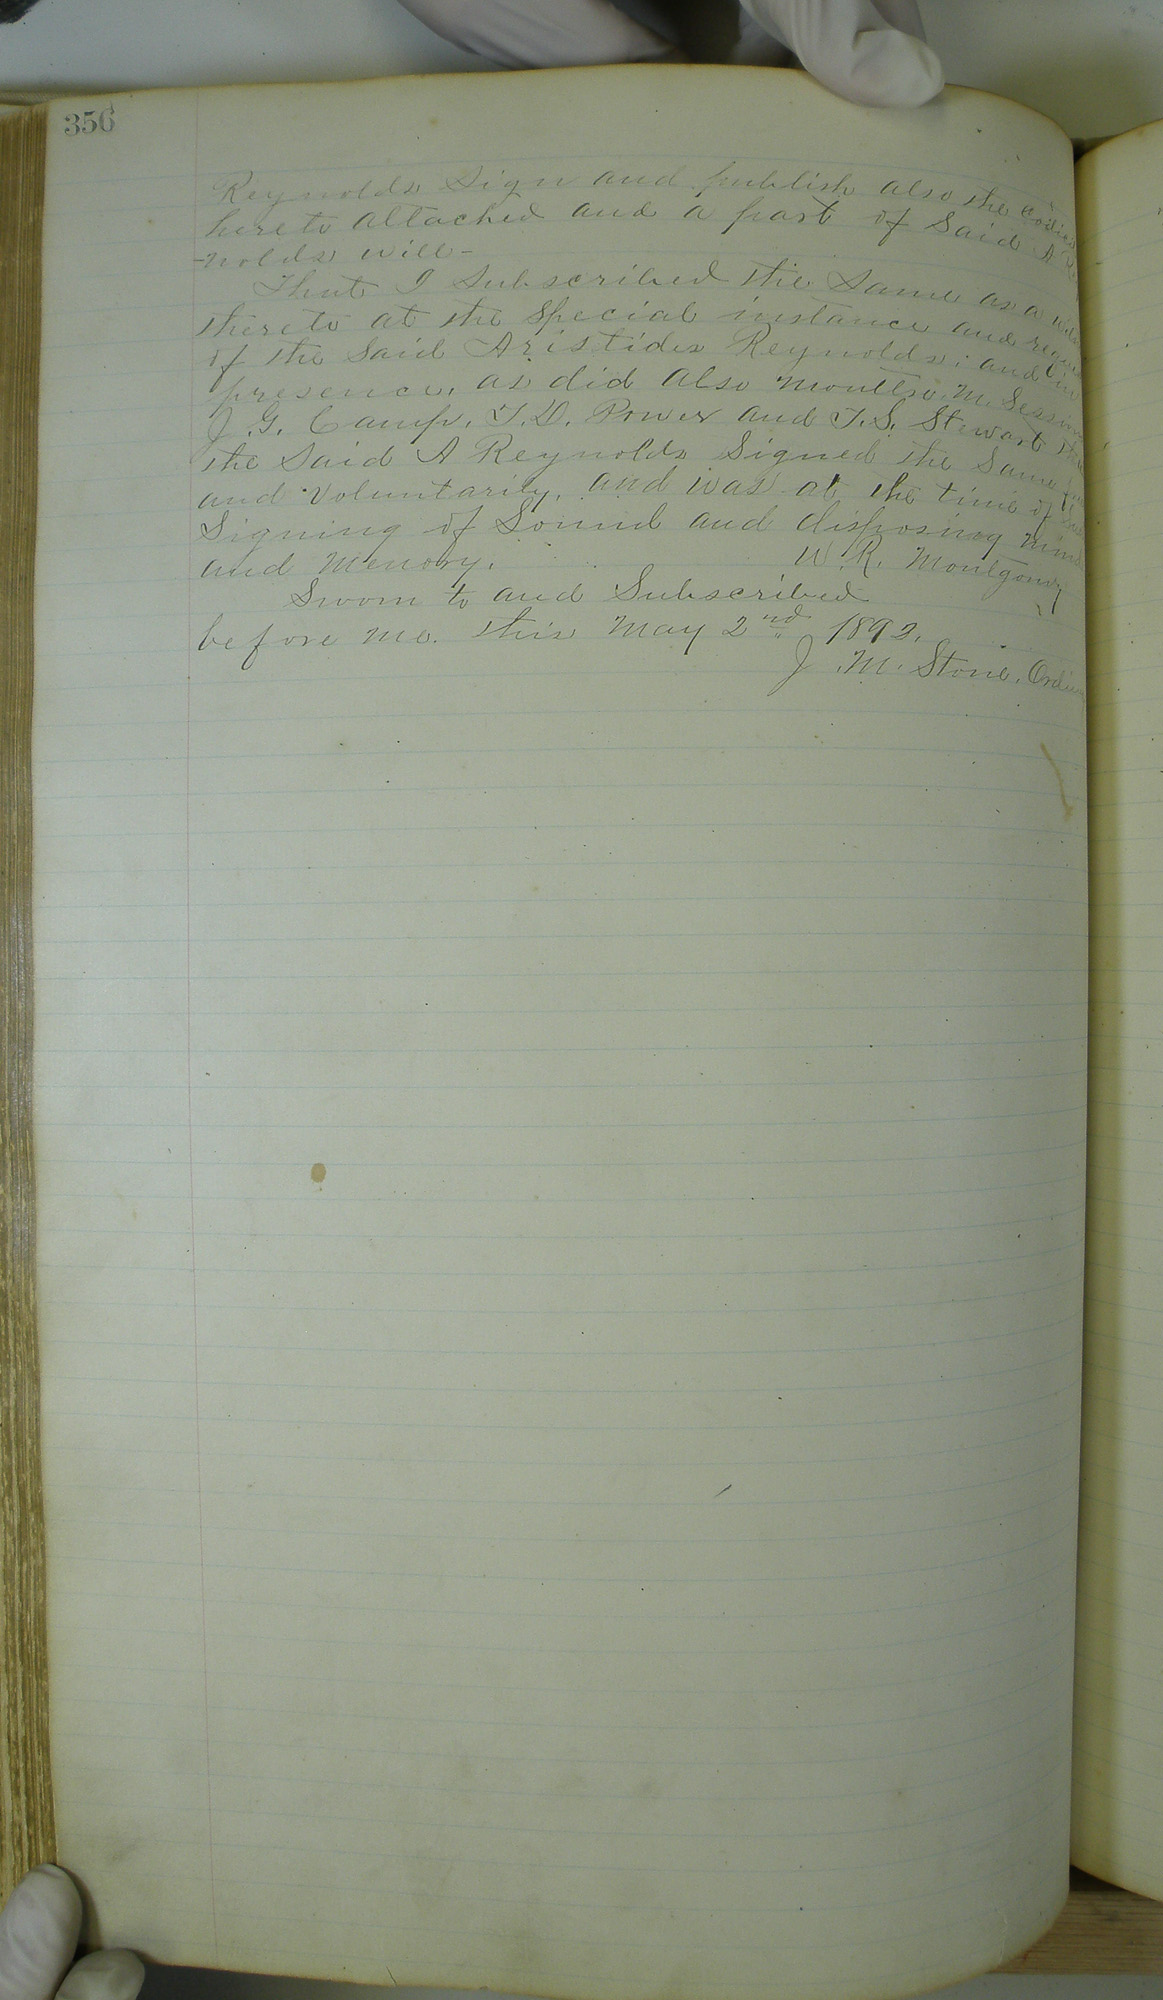 356
Reynolds Sign and publish also the Codicil
hereto attached and a part of Said A Rey
-nolds will-
That I Subscribed the Same as a
thereto at the Special instance and request
of the Said Aristides Reynolds; and in
presence, as did also M. Sessions
J. G. Camp, T. D. Power and T. S. Stewart that
the Said A Reynolds Signed the Same
and Voluntarily, and was at the time of
Signing of Sound and disposing mind
and Memory. W. R. Montgomery
Sworn to and Subscribed
before me. this May 2nd 1892.
J. M. Stone. Ordinary